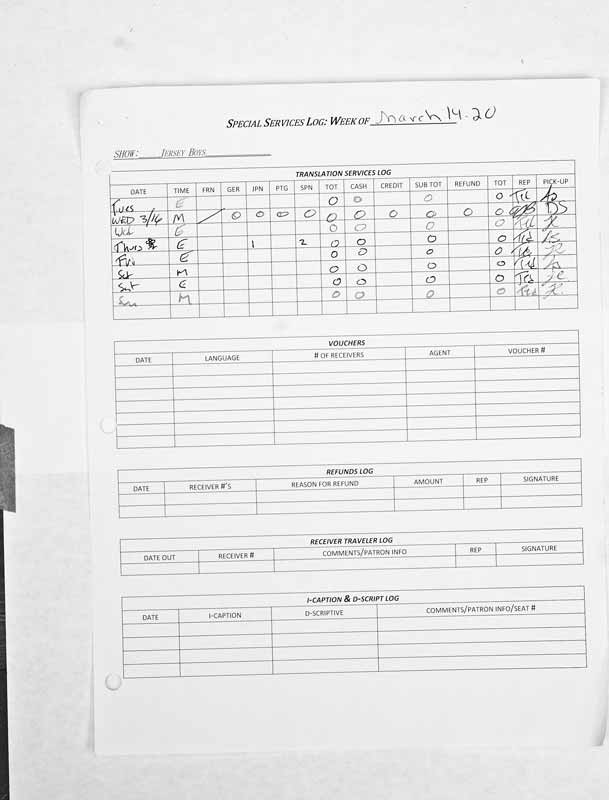 SPECIAL SERVICES LOG: WEEK OF March 14-20
SHOW: JERSEY BOYS
TRANSLATION SERVICES LOG
DATE TIME FRN GER JPN PTG SPN TOT CASH CREDIT SUB TOT REFUND TOT REP PICK-UP
Tues E 0 0 0 0
WED 3/16 M / 0 0 0 0 0 0 0 0 0 0 DS
Wed E 0 0 0 0
Thurs E 1 2 0 0 0 0
Fri E 0 0 0 0
Sat M 0 0 0 0
Sat E 0 0 0 0
Sun M 0 0 0 0
VOUCHERS
DATE LANGUAGE # OF RECEIVERS AGENT VOUCHER #
REFUNDS LOG
DATE RECEIVER #'S REASON FOR REFUND AMOUNT REP SIGNATURE
RECEIVER TRAVELER LOG
DATE OUT RECEIVER # COMMENTS/PATRON INFO REP SIGNATURE
I-CAPTION & D-SCRIPT LOG
DATE I-CAPTION D-SCRIPTIVE COMMENTS/PATRON INFO/SEAT #